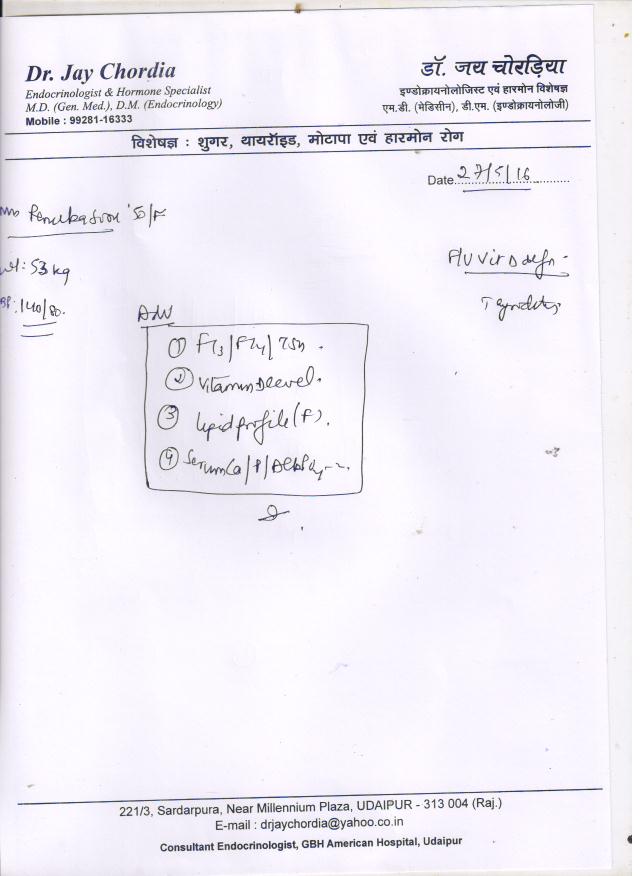 Dr. Jay Chordia
Endocrinologist & Hormone Specialist
M.D. (Gen. Med.), D.M. (Endocrinology)
Mobile : 99281-16333
डॉ. जय चोरड़िया
इण्डोक्रायनोलोजिस्ट एवं हारमोन विशेषज्ञ
एम.डी. (मेडिसीन), डी.एम. (इण्डोक्रायनोलोजी)
विशेषज्ञ : शुगर, थायरॉइड, मोटापा एवं हारमोन रोग
Date 27/5/16
50/F
wt: 53 kg
BP: 140/80.
F/U Vit D defn
Adv
① FT3/FT4/TSH.
② Vitamin D level.
③ lipid profile (F).
④ Serum Ca/P/
221/3, Sardarpura, Near Millennium Plaza, UDAIPUR - 313 004 (Raj.)
E-mail : drjaychordia@yahoo.co.in
Consultant Endocrinologist, GBH American Hospital, Udaipur